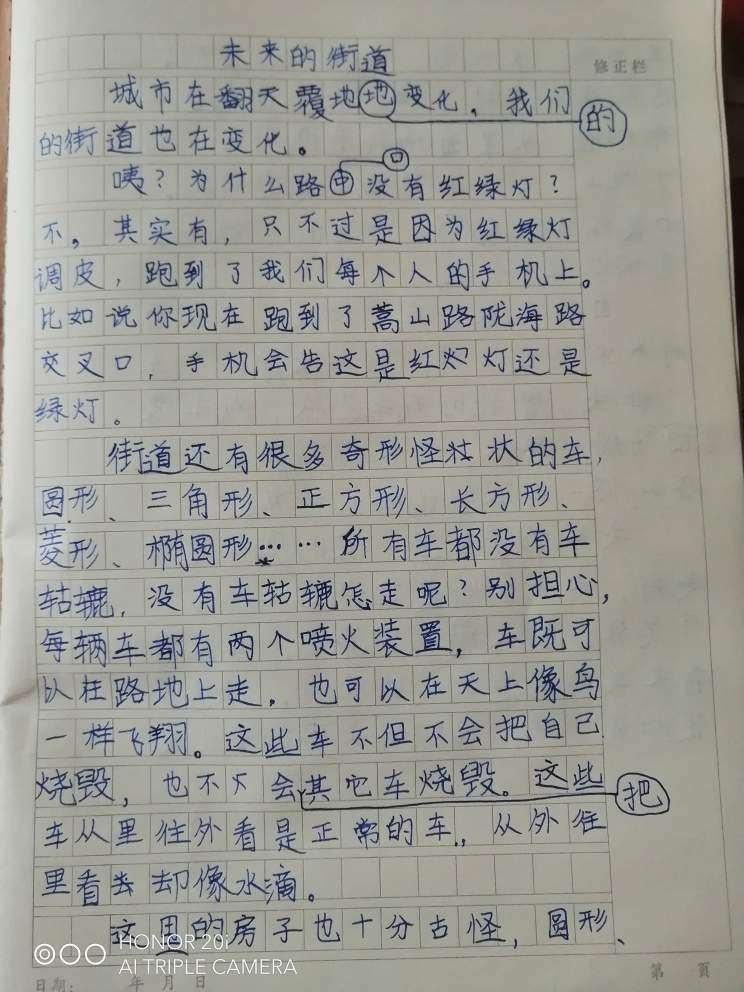 未来的街道
修正栏
城市在翻天覆地地变化，我们
的
的街道也在变化。
口
咦？为什么路中没有红绿灯？
不，其实有，只不过是因为红绿灯
调皮，跑到了我们每个人的手机上。
比如说你现在跑到了嵩山路陇海路
交叉口，手机会告这是红灯还是
绿灯。
街道还有很多奇形怪状的车，
圆形、三角形、正方形、长方形、
菱形、椭圆形……所有车都没有车
轱辘，没有车轱辘怎走呢？别担心，
每辆车都有两个喷火装置，车既可
以在路地上走，也可以在天上像鸟
一样飞翔。这些车不但不会把自己
烧毁，也不会其它车烧毁。这些
把
车从里往外看是正常的车，从外往
里看去却像水滴。
这里的房子也十分古怪，圆形、
HONOR 20i
AI TRIPLE CAMERA
日期： 年 月 日
第 页